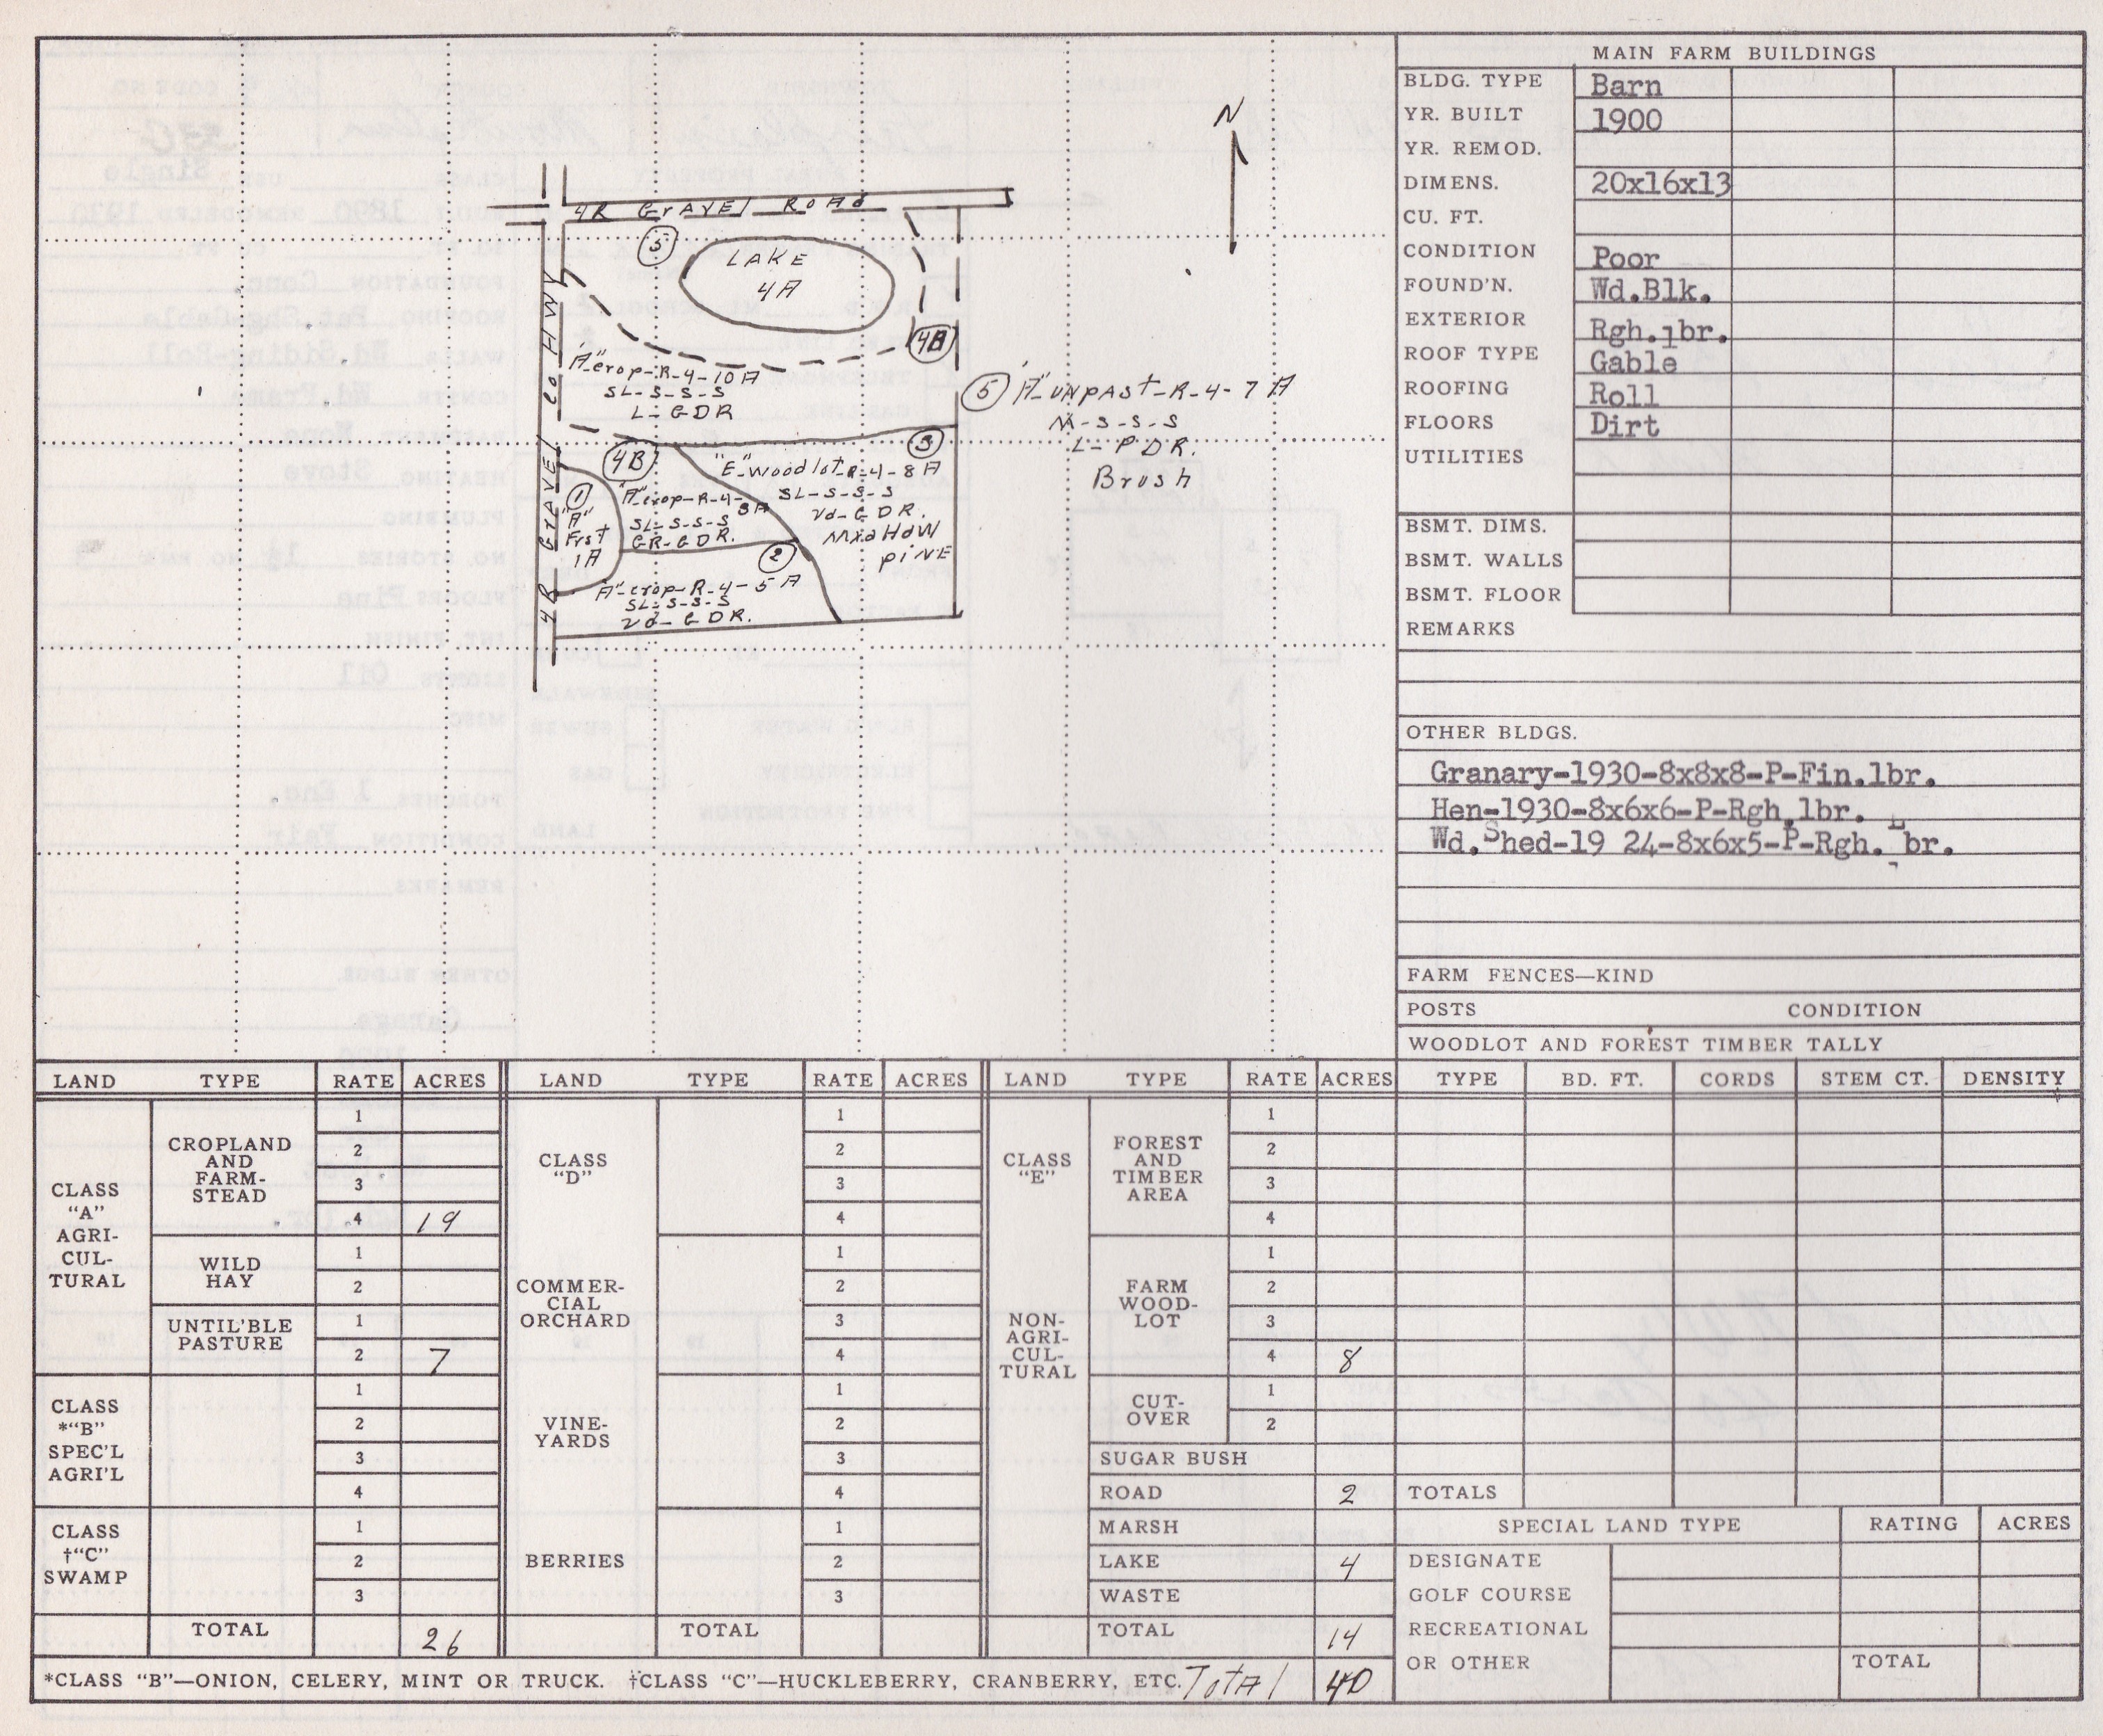 N
4R GrAVEl ROAd
5
LAKE
4A
4B
4R GrAVEl CO HWY
"A" crop-R-4-10A
SL-S-S-S
L-GDR
5 "A" UNpASt-R-4-7A
M-S-S-S
L-PDR.
Brush
3
4B
"E" woodlot-R-4-8A
SL-S-S-S
Vd-GDR.
MxdHdW
piNE
1
"A"
Frst
1A
"A" crop-R-4-3A
SL-S-S-S
GR-GDR.
2
"A" crop-R-4-5A
SL-S-S-S
Vd-GDR.
MAIN FARM BUILDINGS
BLDG. TYPE Barn
YR. BUILT 1900
YR. REMOD.
DIMENS. 20x16x13
CU. FT.
CONDITION Poor
FOUND'N. Wd.Blk.
EXTERIOR Rgh.lbr.
ROOF TYPE Gable
ROOFING Roll
FLOORS Dirt
UTILITIES
BSMT. DIMS.
BSMT. WALLS
BSMT. FLOOR
REMARKS
OTHER BLDGS.
Granary-1930-8x8x8-P-Fin.lbr.
Hen-1930-8x6x6-P-Rgh.lbr.
Wd.Shed-19 24-8x6x5-P-Rgh.Lbr.
FARM FENCES—KIND
POSTS CONDITION
WOODLOT AND FOREST TIMBER TALLY
LAND TYPE RATE ACRES LAND TYPE RATE ACRES LAND TYPE RATE ACRES TYPE BD. FT. CORDS STEM CT. DENSITY
CLASS
"A"
AGRI-
CUL-
TURAL
CROPLAND
AND
FARM-
STEAD
1
2
3
4 19
WILD
HAY
1
2
UNTIL'BLE
PASTURE
1
2 7
CLASS
*"B"
SPEC'L
AGRI'L
1
2
3
4
CLASS
†"C"
SWAMP
1
2
3
TOTAL 26
CLASS
"D"
COMMER-
CIAL
ORCHARD
VINE-
YARDS
BERRIES
1
2
3
4
1
2
3
4
1
2
3
4
1
2
3
TOTAL
CLASS
"E"
NON-
AGRI-
CUL-
TURAL
FOREST
AND
TIMBER
AREA
1
2
3
4
FARM
WOOD-
LOT
1
2
3
4 8
CUT-
OVER
1
2
SUGAR BUSH
ROAD 2
MARSH
LAKE 4
WASTE
TOTAL 14
TOTALS
SPECIAL LAND TYPE RATING ACRES
DESIGNATE
GOLF COURSE
RECREATIONAL
OR OTHER
TOTAL
*CLASS "B"—ONION, CELERY, MINT OR TRUCK. †CLASS "C"—HUCKLEBERRY, CRANBERRY, ETC. TotAl 40